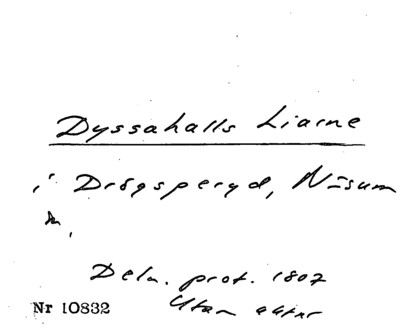 Dyssahalls Liarne
i Drögsperyd, Näsum
sn.
Deln. prot. 1807
Nr 10832 Utan aktnr